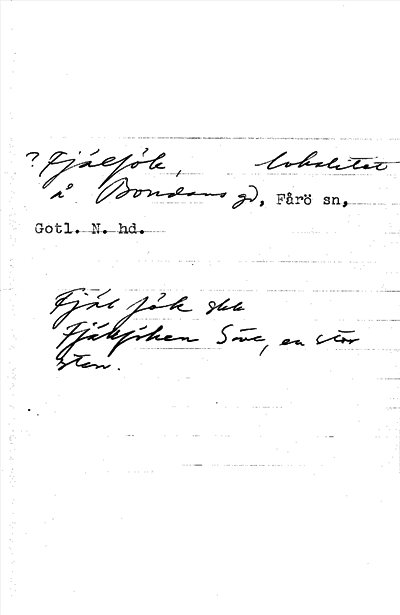 ? Fjäljôk, lokalitet
å Bondans gd, Fårö sn,
Gotl. N. hd.
Fjäl jôk
Fjäljôken Säve, en stor
sten.